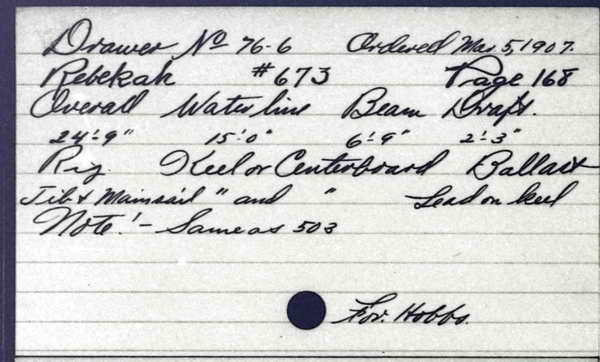 Drawer No 76-6 Ordered Mar 5, 1907.
Rebekah #673 Page 168
Overall Waterline Beam Draft.
24'-9" 15'-0" 6'-9" 2'-3"
Rig Keel or Centerboard Ballast
Jib & Mainsail " and " Lead on keel
Note! - Same as 503
For. Hobbs.